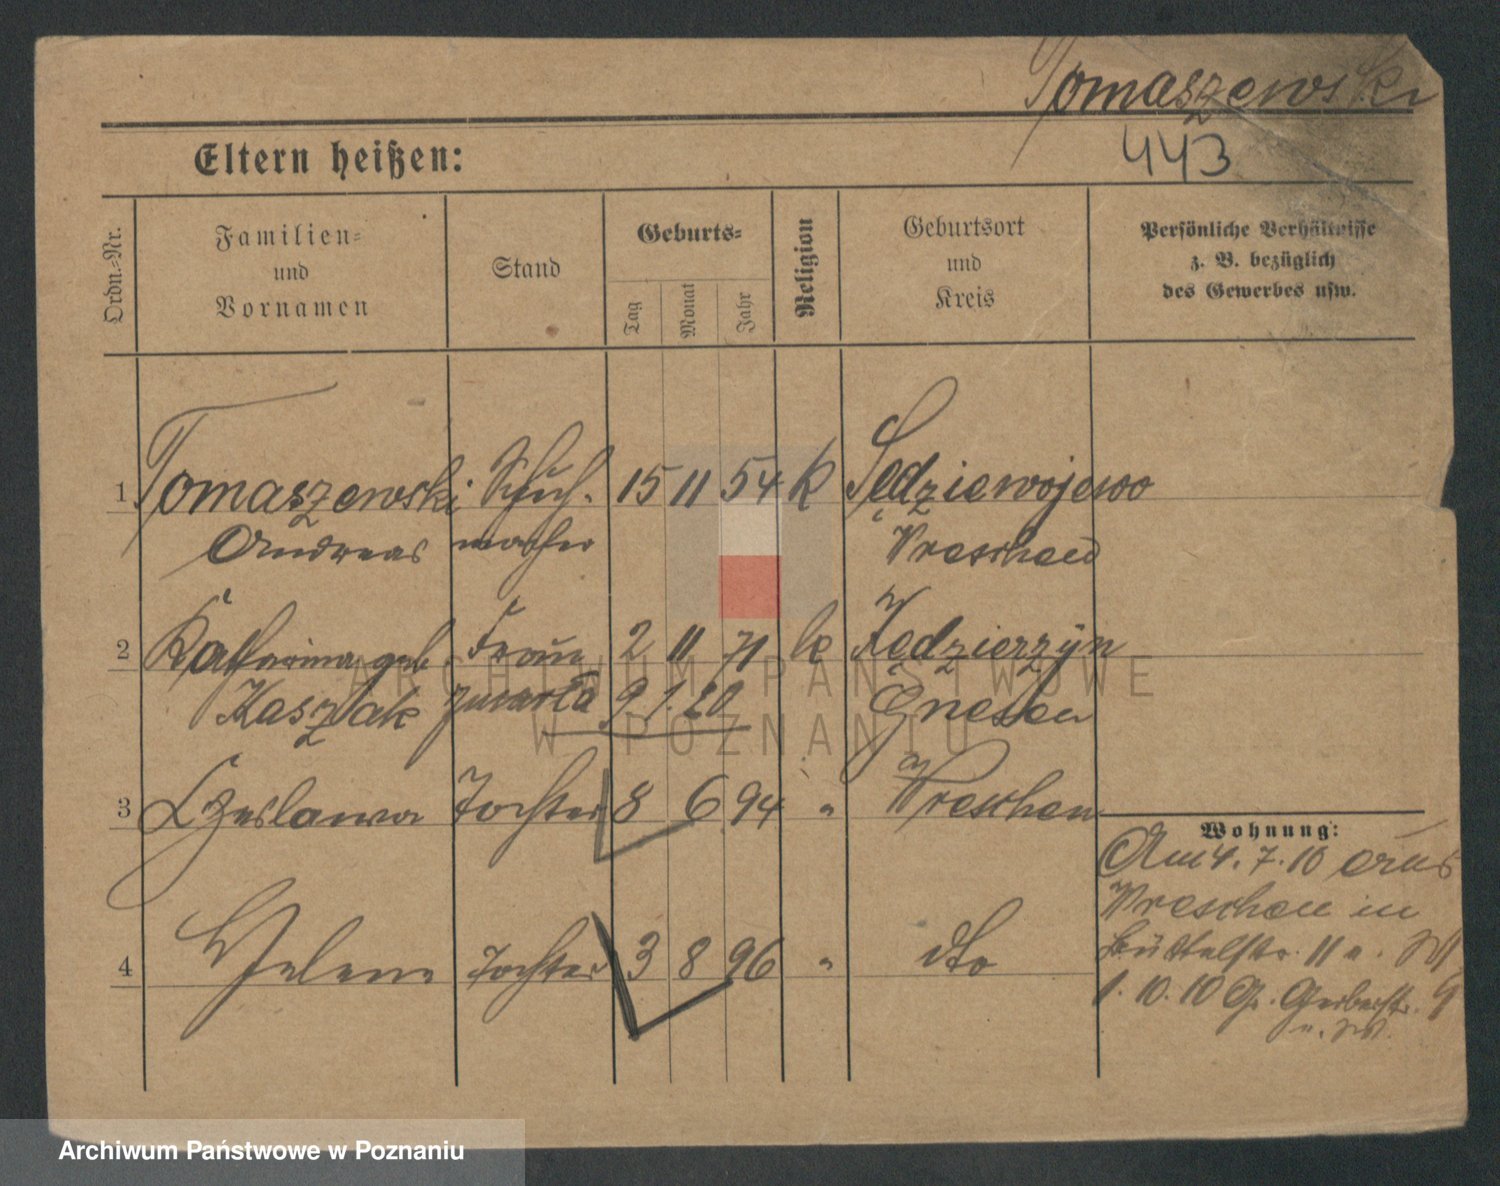 Tomaszewski
443
Eltern heißen:
Ordn.-Nr.
Familien-
und
Vornamen
Stand
Geburts-
Tag
Monat
Jahr
Religion
Geburtsort
und
Kreis
Persönliche Verhältnisse
z. B. bezüglich
des Gewerbes usw.
1 Tomaszewski Schuh- 15 11 54 k Sędziewojewo
Andreas macher Wreschen
2 Katharina geb. Frau 2 11 71 k Jędzierzyn
Kaszak zmarła 9 1. 20 Gnesen
3 Czeslawa Tochter 8 6 94 " Wreschen
4 Helene Tochter 3 8 96 " dto
Wohnung:
Am 4. 7. 10 aus
Wreschen in
Büttelstr. 11
1. 10. 10 Gr. Gerberstr. 9
ARCHIWUM PAŃSTWOWE
W POZNANIU
Archiwum Państwowe w Poznaniu